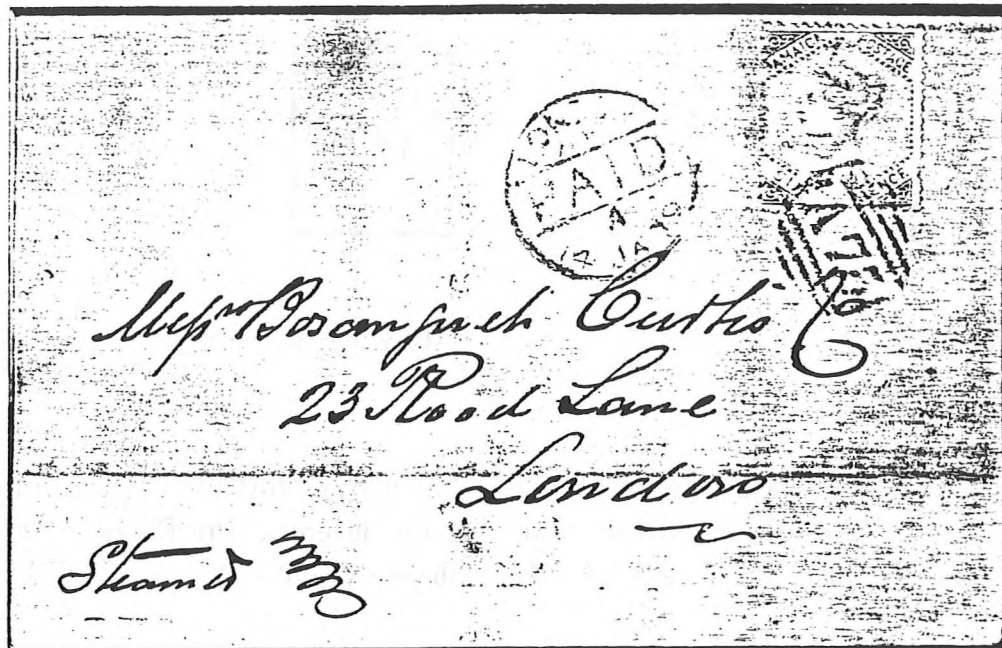 JAMAICA POSTAGE
PENCE
LON
PAID
12 JA
A 7
Messrs Bosanquet Curtis &
23 Rood Lane
London
Steamer